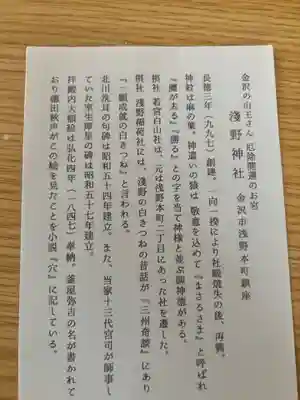 金沢の山王さん 厄除開運のお宮
淺野神社 金沢市浅野本町鎮座
長徳三年(九九七)創建。一向一揆により社殿焼失の後、再興。
神紋は麻の葉。神遣いの猿は、敬意を込めて『まさるさま』と呼ばれ
『魔が去る』『勝る』との字を当て神様と並ぶ御神徳がある。
摂社 若宮白山社は、元は浅野本町二丁目にあった社を遷した。
摂社 浅野稲荷社には、浅野の白きつねの昔話が『三州奇談』にあり
『一願成就の白きつね』と言われる。
北川洗耳の句碑は昭和五十四年建立。また、当家十三代宮司が師事し
ていた室生犀星の碑は昭和五十七年建立。
拝殿内大幅絵は弘化四年(一八四七)奉納。釜屋弥吉の名が書かれて
おり徳田秋声がこの絵を見たことを小説『穴』に記している。